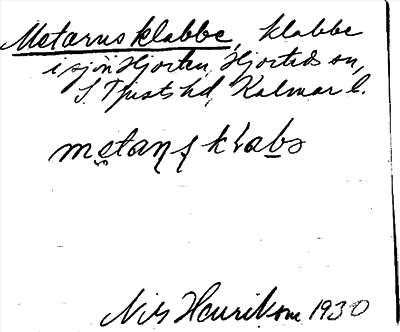 Metarnsklabbe, klabbe
i sjön Hjorten, Hjorteds sn,
S. Tjusts hd, Kalmar l.
Nils Henrikson 1930